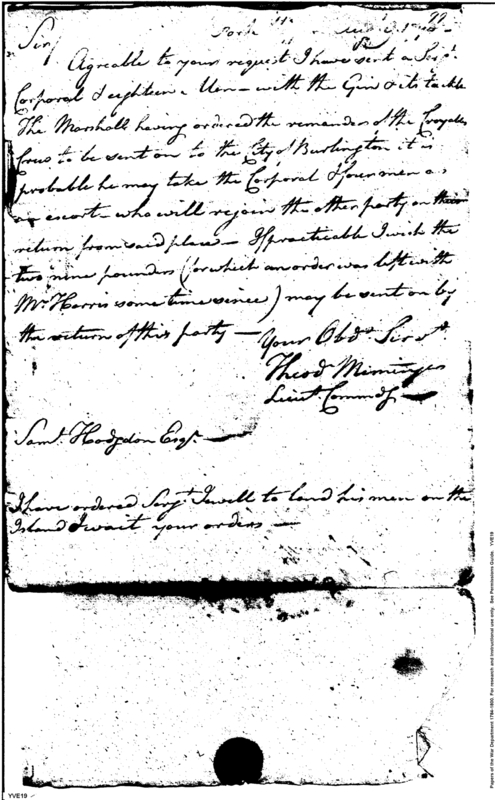 99
Sir/
Agreable to your request I have sent a Serjt.
Corporal & eighteen Men — with the Gin & its tackle
The Marshall having ordered the remainder of the Croyable
Crew to be sent on to the City of Burlington it is
probable he may take the Corporal & four men as
an escort — who will rejoin the other party on their
return from said place — If practicable I wish the
two nine pounders (for which an order was left with
Mr. Harris some time since) may be sent on by
the return of this party —
Your Obdt. Servt.
Theod Meminger
Lieut. Commdg —
Saml. Hodgdon Esqr. —
I have ordered Serjt. Jewell to land his men on the
Island & wait your orders —
YVE19
Papers of the War Department 1784-1800. For research and instructional use only. See Permissions Guide. YVE19